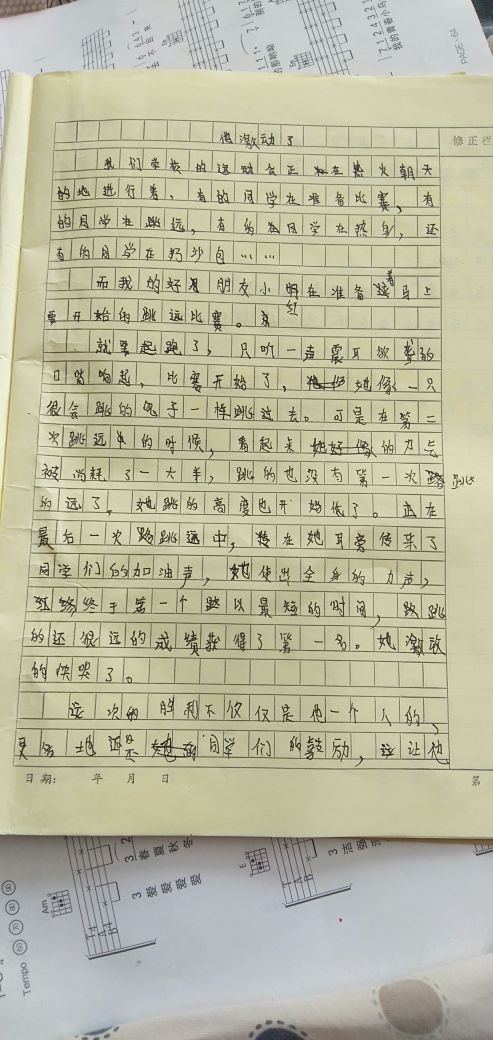 他激动了
修正栏
我们学校的运动会正在热火朝天
的地进行着，有的同学在准备比赛，有
的同学在跳远，有的在同学在热身，还
有的同学在扔沙包……
而我的好朋友小红在准备着马上
要开始的跳远比赛。
就要起跑了，只听一声震耳欲聋的
口哨响起，比赛开始了，她像一只
很会跳的兔子一样跳过去。可是在第二
次跳远的时候，看起来她好像的力气
被消耗了一大半，跳的也没有第一次跳
的远了，她跳的高度也开始低了。正在
最后一次跳远中，在她耳旁传来了
同学们的加油声，她使出全身的力声，
终于第一个以最短的时间，跳
的还很远的成绩获得了第一名。她激动
的快哭了。
这次的胜利不仅仅是他一个人的，
更多地还是同学们的鼓励，这让他
日期： 年 月 日
第
PAGE 64
我的青春小鸟
Am
Tempo
3 春夏秋冬
3 爱爱爱爱
E